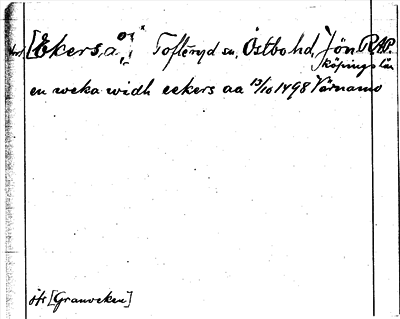 [Ekers, a, ö]  Tofteryd sn, Östbo hd, Jön- RAP.
köpings län
en weka widh eekers aa 13/10 1498 Värnamo
jfr [Granveken]